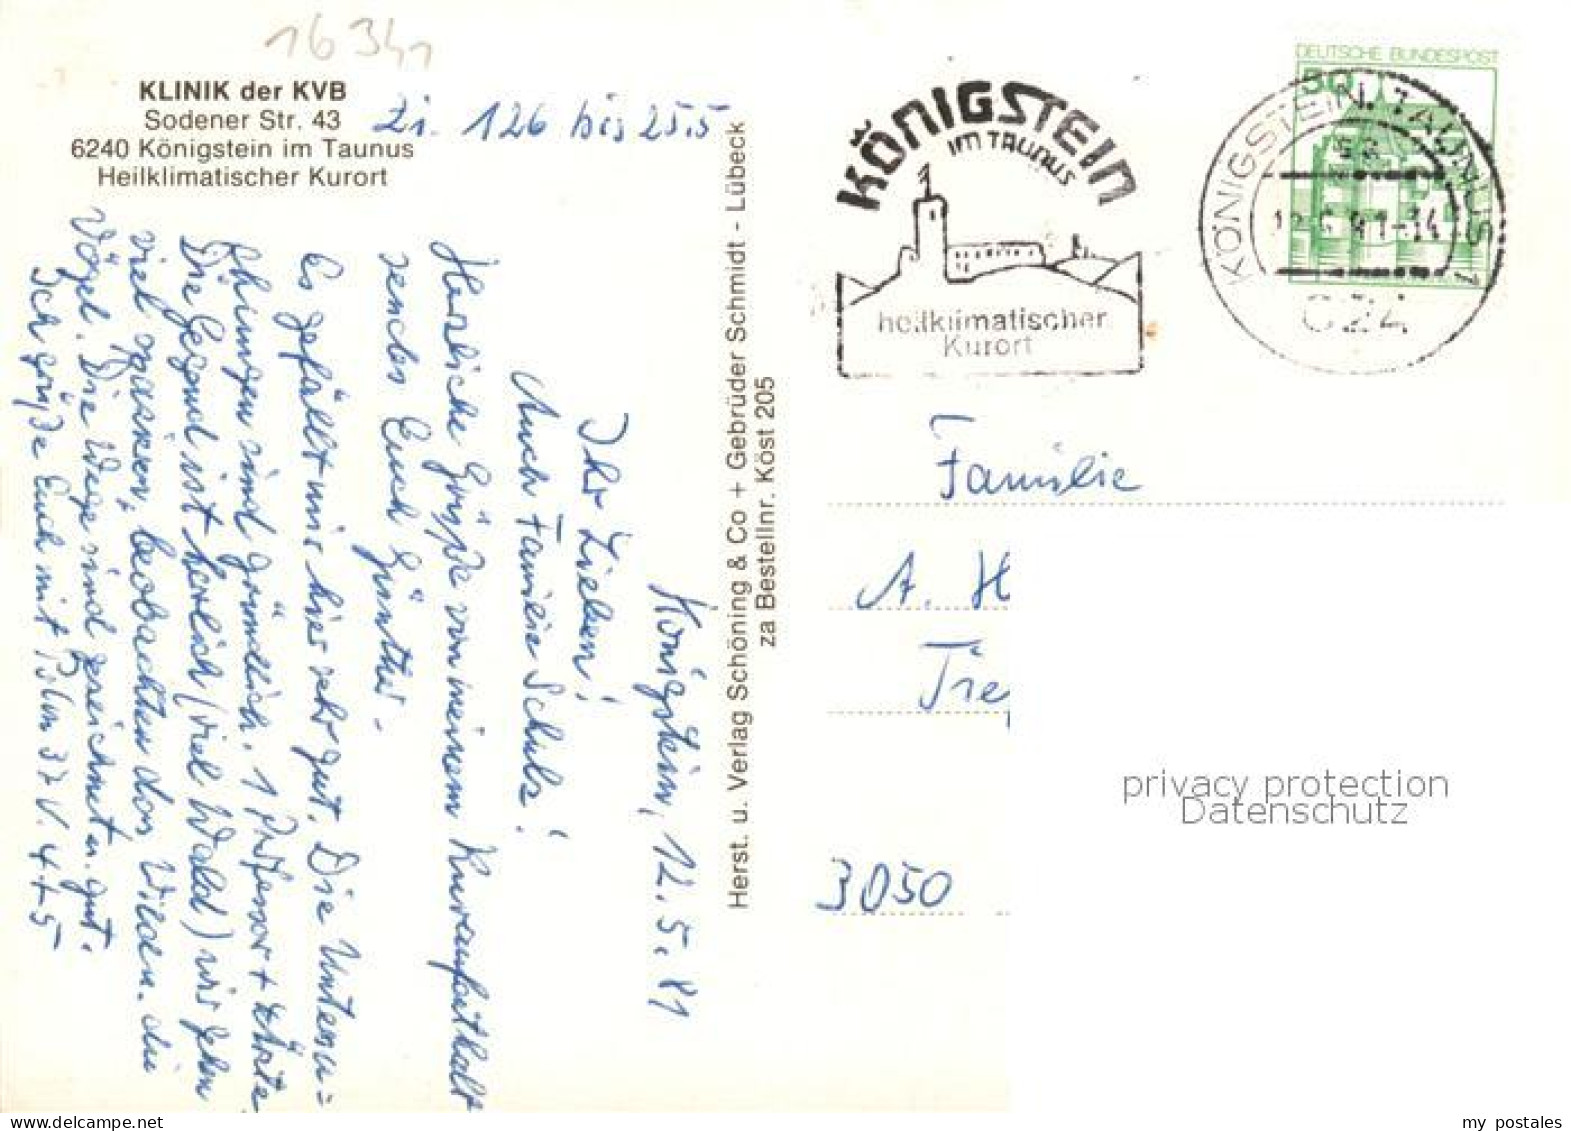 16341
KLINIK der KVB
Sodener Str. 43
6240 Königstein im Taunus
Heilklimatischer Kurort
Zi. 126 bis 25.5
Königstein, 12.5.81
Ihr Lieben!
Auch Familie Schulz!
Herzliche Grüße von meinem Kuraufenthalt
sendes Euch Günther -
Es gefällt mir hier sehr gut. Die Untersu=
chungen sind gründlich. 1 Professor + Ärzte
Die Gegend ist herrlich (viel Wald) wir gehn
viel beobachten das Wilden. die
Vögel. Die Wege sind gezeichnet u. gut.
Ich grüße Euch mit 37 V. 4+5
Herst. u. Verlag Schöning & Co + Gebrüder Schmidt - Lübeck
za Bestellnr. Köst 205
KÖNIGSTEIN
IM TAUNUS
heilklimatischer
Kurort
DEUTSCHE BUNDESPOST
50
KÖNIGSTEIN, TAUNUS 1
-14
624
Familie
A. H
Tre
3050
privacy protection
Datenschutz
delcampe.net
my_postales